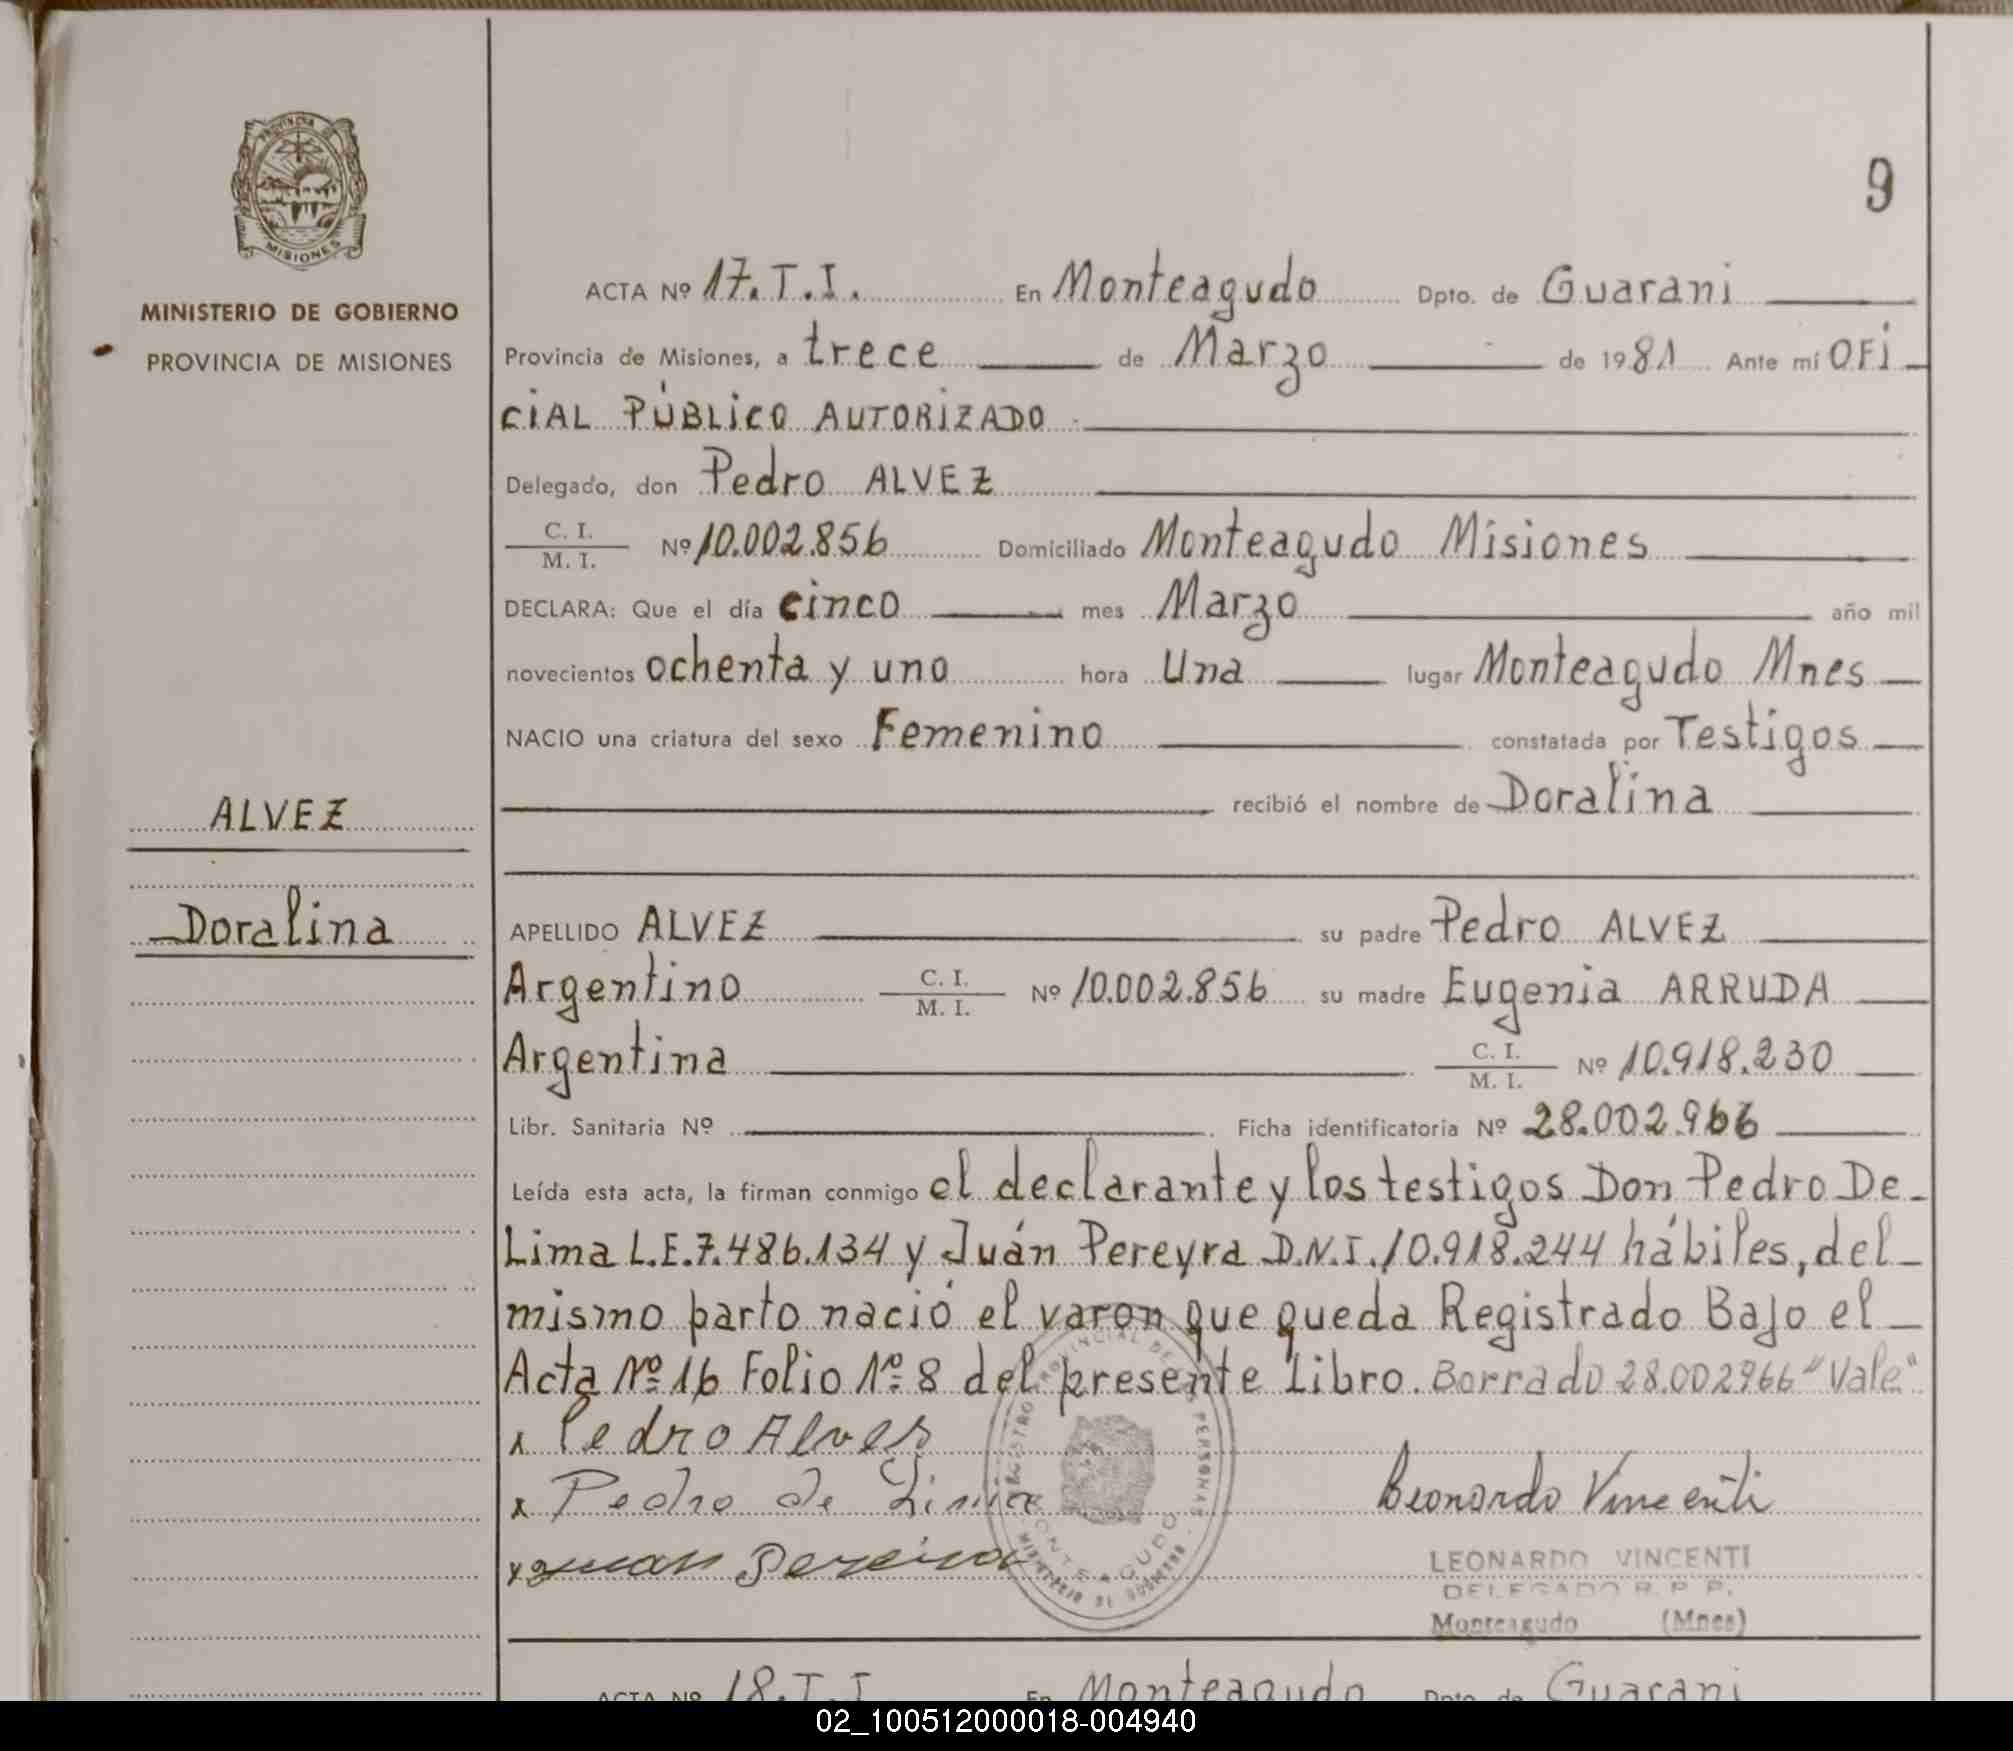 PROVINCIA DE
MISIONES
MINISTERIO DE GOBIERNO
PROVINCIA DE MISIONES
9
ACTA Nº 17.T.I. En Monteagudo Dpto. de Guarani
Provincia de Misiones, a trece de Marzo de 1981 Ante mí OFi
CiAL PÚBLiCO AUTORiZADO
Delegado, don Pedro ALVEZ
C. I.
M. I. Nº 10.002.856 Domiciliado Monteagudo Misiones
DECLARA: Que el día cinco mes Marzo año mil
novecientos ochenta y uno hora Una lugar Monteagudo Mnes
NACIO una criatura del sexo Femenino constatada por Testigos
recibió el nombre de Doralina
ALVEZ
Doralina
APELLIDO ALVEZ su padre Pedro ALVEZ
Argentino C. I.
M. I. Nº 10.002.856 su madre Eugenia ARRUDA
Argentina C. I.
M. I. Nº 10.918.230
Libr. Sanitaria Nº Ficha identificatoria Nº 28.002.966
Leída esta acta, la firman conmigo el declarante y los testigos Don Pedro De
Lima L.E.7.486.134 y Juán Pereyra D.N.I.10.918.244 hábiles, del
mismo parto nació el varon que queda Registrado Bajo el
Acta Nº 16 Folio Nº 8 del presente Libro. Borrado 28.002966 "Vale".
x Pedro Alves
x Pedro de Lima
x Juan Pereira
Leonardo Vincenti
REGISTRO PROVINCIAL DE LAS PERSONAS
MONTEAGUDO
MINISTERIO DE GOBIERNO
LEONARDO VINCENTI
DELEGADO R. P. P.
Monteagudo (Mnes)
ACTA Nº 18.T.I En Monteagudo Dpto. de Guarani
02_100512000018-004940